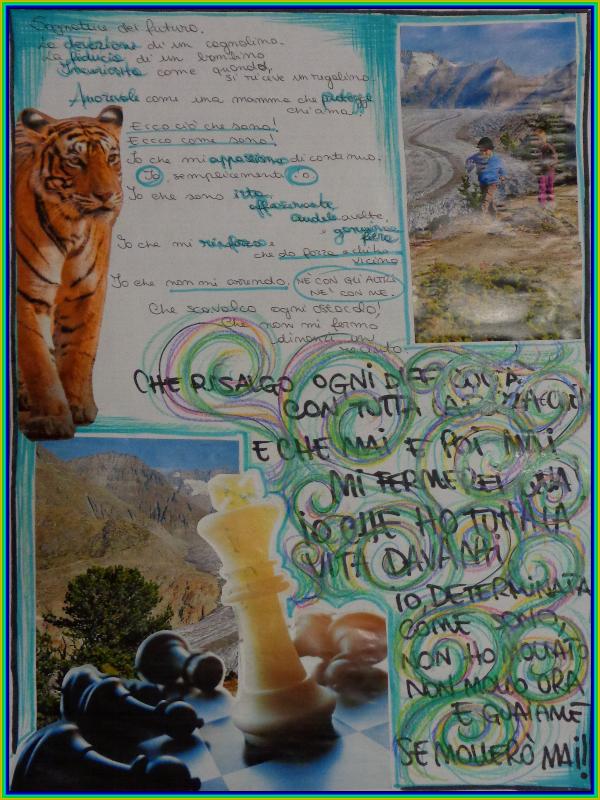 Sognatrice del futuro.
La devozione di un cagnolino.
La fiducia di un bambino
Incuriosita come quando,
si riceve un regalino.
Amorevole come una mamma che protegge
chi ama!
Ecco ciò che sono!
Eccco come sono!
Io che mi appassiono di continuo.
Io, semplicemente io
Io che sono
affascinante
crudele avolte,
e
fiera
Io che mi rinforzo e
che do forza a chi ho
vicino
Io che non mi arrendo, NÈ CON GLI ALTRI
NE' CON ME.
Che scavalco ogni ostacolo!
Che non mi fermo
dinanzi un
CHE RISALGO OGNI DIFFICOLTA
CON TUTTA LA
E CHE MAI E POI MAI
MI FERMEREI UNA
IO CHE HO TUTTA LA
VITA DAVANTI
IO, DETERMINATA
COME SONO,
NON HO MOLLATO
NON MOLLO ORA
E GUAI A ME
SE MOLLERÒ MAI!